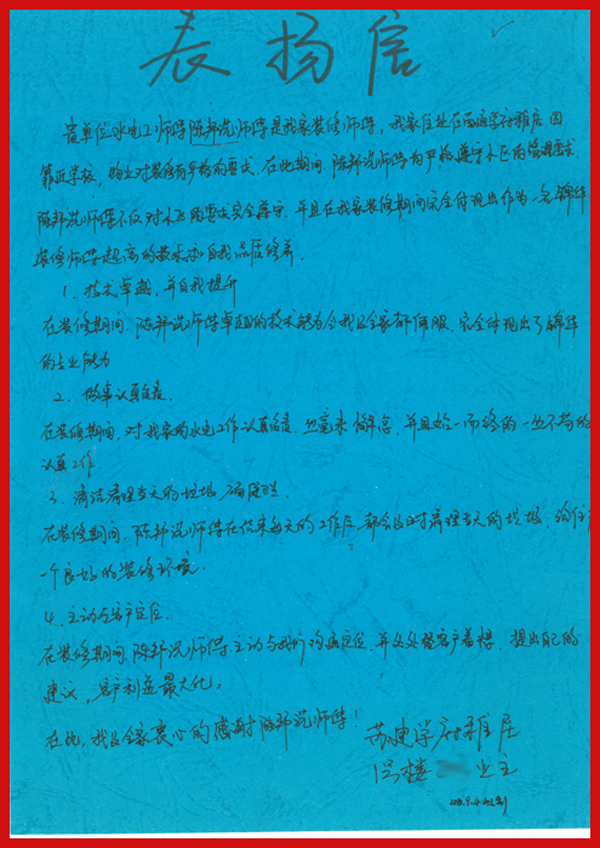 表扬信
贵单位水电工师傅陈邦况师傅是我家装修师傅,我家住址在学府雅居因
靠近学校,物业对装修有严格的要求.在此期间.陈邦况师傅为严格遵守小区内管理要求.
陈邦况师傅不仅对小区的要求完全遵守.并且在我家装修期间完全体现出作为一名锦华
装修师傅超高的技术和自我品质修养.
1. 技术卓越,并自我提升
在装修期间.陈邦况师傅卓越的技术能力令我及全家都佩服.完全体现出了锦华
的专业能力
2. 做事认真负责.
在装修期间.对我家的水电工作认真负责.丝毫未懈怠.并且始终而终的一丝不苟的
认真工作
3. 清洁清理当天的垃圾.
在装修期间.陈邦况师傅在结束每天的工作后.都会及时清理当天的垃圾.给住户
一个良好的装修环境.
4. 主动与客户定位.
在装修期间.陈邦况师傅主动与我们沟通定位.并处处替客户着想.提出自己的
建议,客户利益最大化。
在此,我及全家衷心的感谢陈邦况师傅!
苏建学府雅居
业主